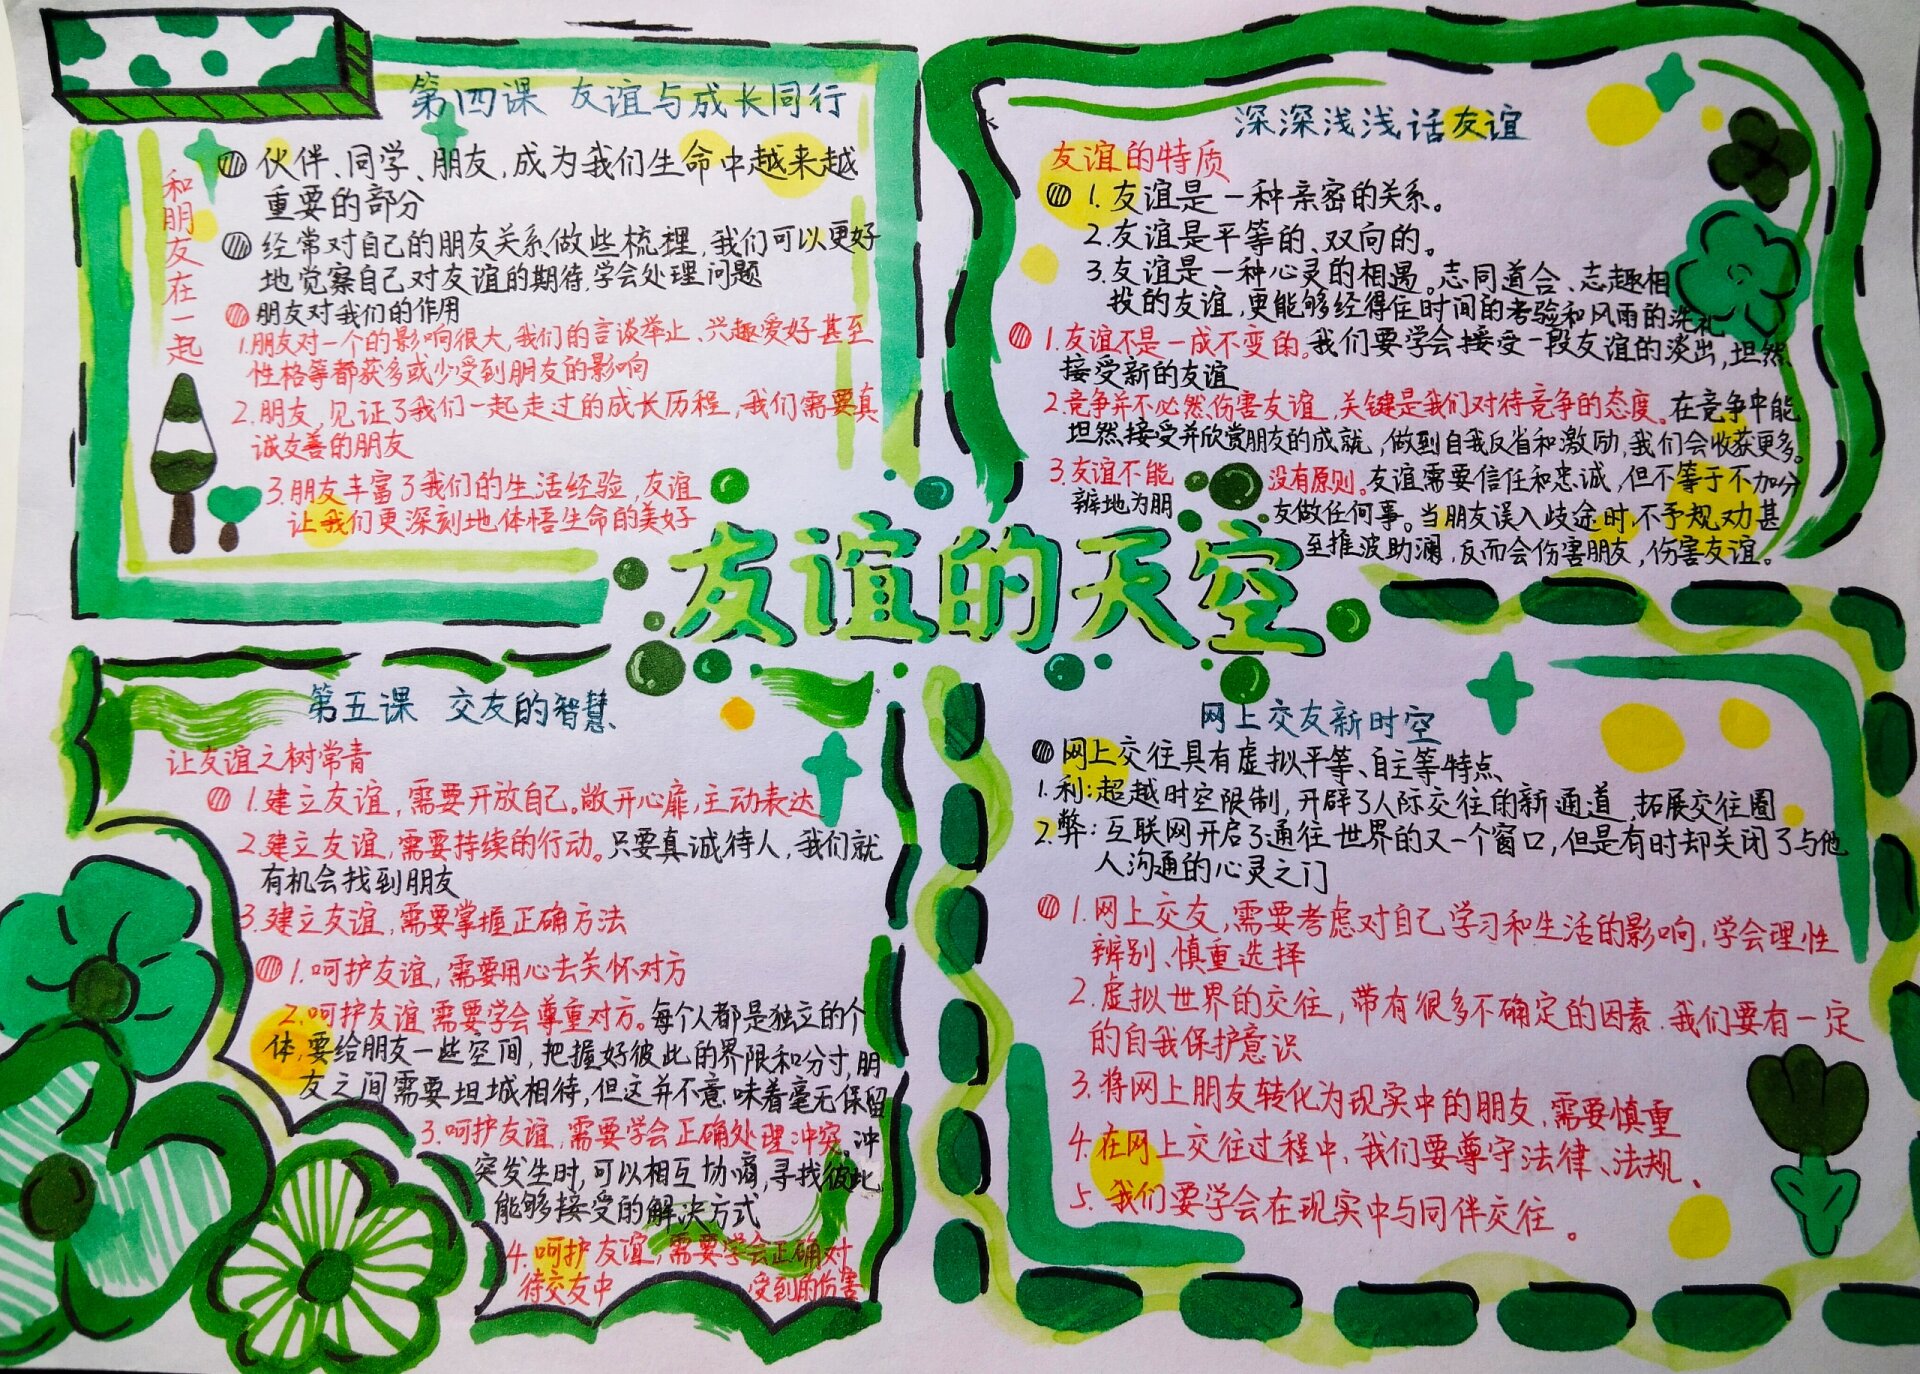 第四课 友谊与成长同行
和朋友在一起
伙伴、同学、朋友,成为我们生命中越来越
重要的部分
经常对自己的朋友关系做些梳理,我们可以更好
地觉察自己对友谊的期待,学会处理问题
朋友对我们的作用
1.朋友对一个的影响很大,我们的言谈举止、兴趣爱好甚至
性格等都获多或少受到朋友的影响
2.朋友,见证了我们一起走过的成长历程,我们需要真
诚友善的朋友
3.朋友丰富了我们的生活经验,友谊
让我们更深刻地体悟生命的美好
深深浅浅话友谊
友谊的特质
1.友谊是一种亲密的关系。
2.友谊是平等的、双向的。
3.友谊是一种心灵的相遇。志同道合、志趣相
投的友谊,更能够经得住时间的考验和风雨的洗礼
1.友谊不是一成不变的。我们要学会接受一段友谊的淡出,坦然
接受新的友谊
2.竞争并不必然伤害友谊,关键是我们对待竞争的态度。在竞争中能
坦然接受并欣赏朋友的成就,做到自我反省和激励,我们会收获更多。
3.友谊不能没有原则。友谊需要信任和忠诚,但不等于不加分
辨地为朋友做任何事。当朋友误入歧途时,不予规劝甚
至推波助澜,反而会伤害朋友,伤害友谊。
友谊的天空
第五课 交友的智慧
让友谊之树常青
1.建立友谊,需要开放自己。敞开心扉,主动表达
2.建立友谊,需要持续的行动。只要真诚待人,我们就
有机会找到朋友
3.建立友谊,需要掌握正确方法
1.呵护友谊,需要用心去关怀对方
2.呵护友谊需要学会尊重对方。每个人都是独立的个
体,要给朋友一些空间,把握好彼此的界限和分寸,朋
友之间需要坦城相待,但这并不意味着毫无保留
3.呵护友谊,需要学会正确处理冲突。冲
突发生时,可以相互协商,寻找彼此
能够接受的解决方式
4.呵护友谊,需要学会正确对
待交友中受到的伤害
网上交友新时空
网上交往具有虚拟、平等、自主等特点
1.利:超越时空限制,开辟了人际交往的新通道,拓展交往圈
2.弊:互联网开启了通往世界的又一个窗口,但是有时却关闭了与他
人沟通的心灵之门
1.网上交友,需要考虑对自己学习和生活的影响,学会理性
辨别、慎重选择
2.虚拟世界的交往,带有很多不确定的因素.我们要有一定
的自我保护意识
3.将网上朋友转化为现实中的朋友,需要慎重
4.在网上交往过程中,我们要尊守法律、法规、
5.我们要学会在现实中与同伴交往。